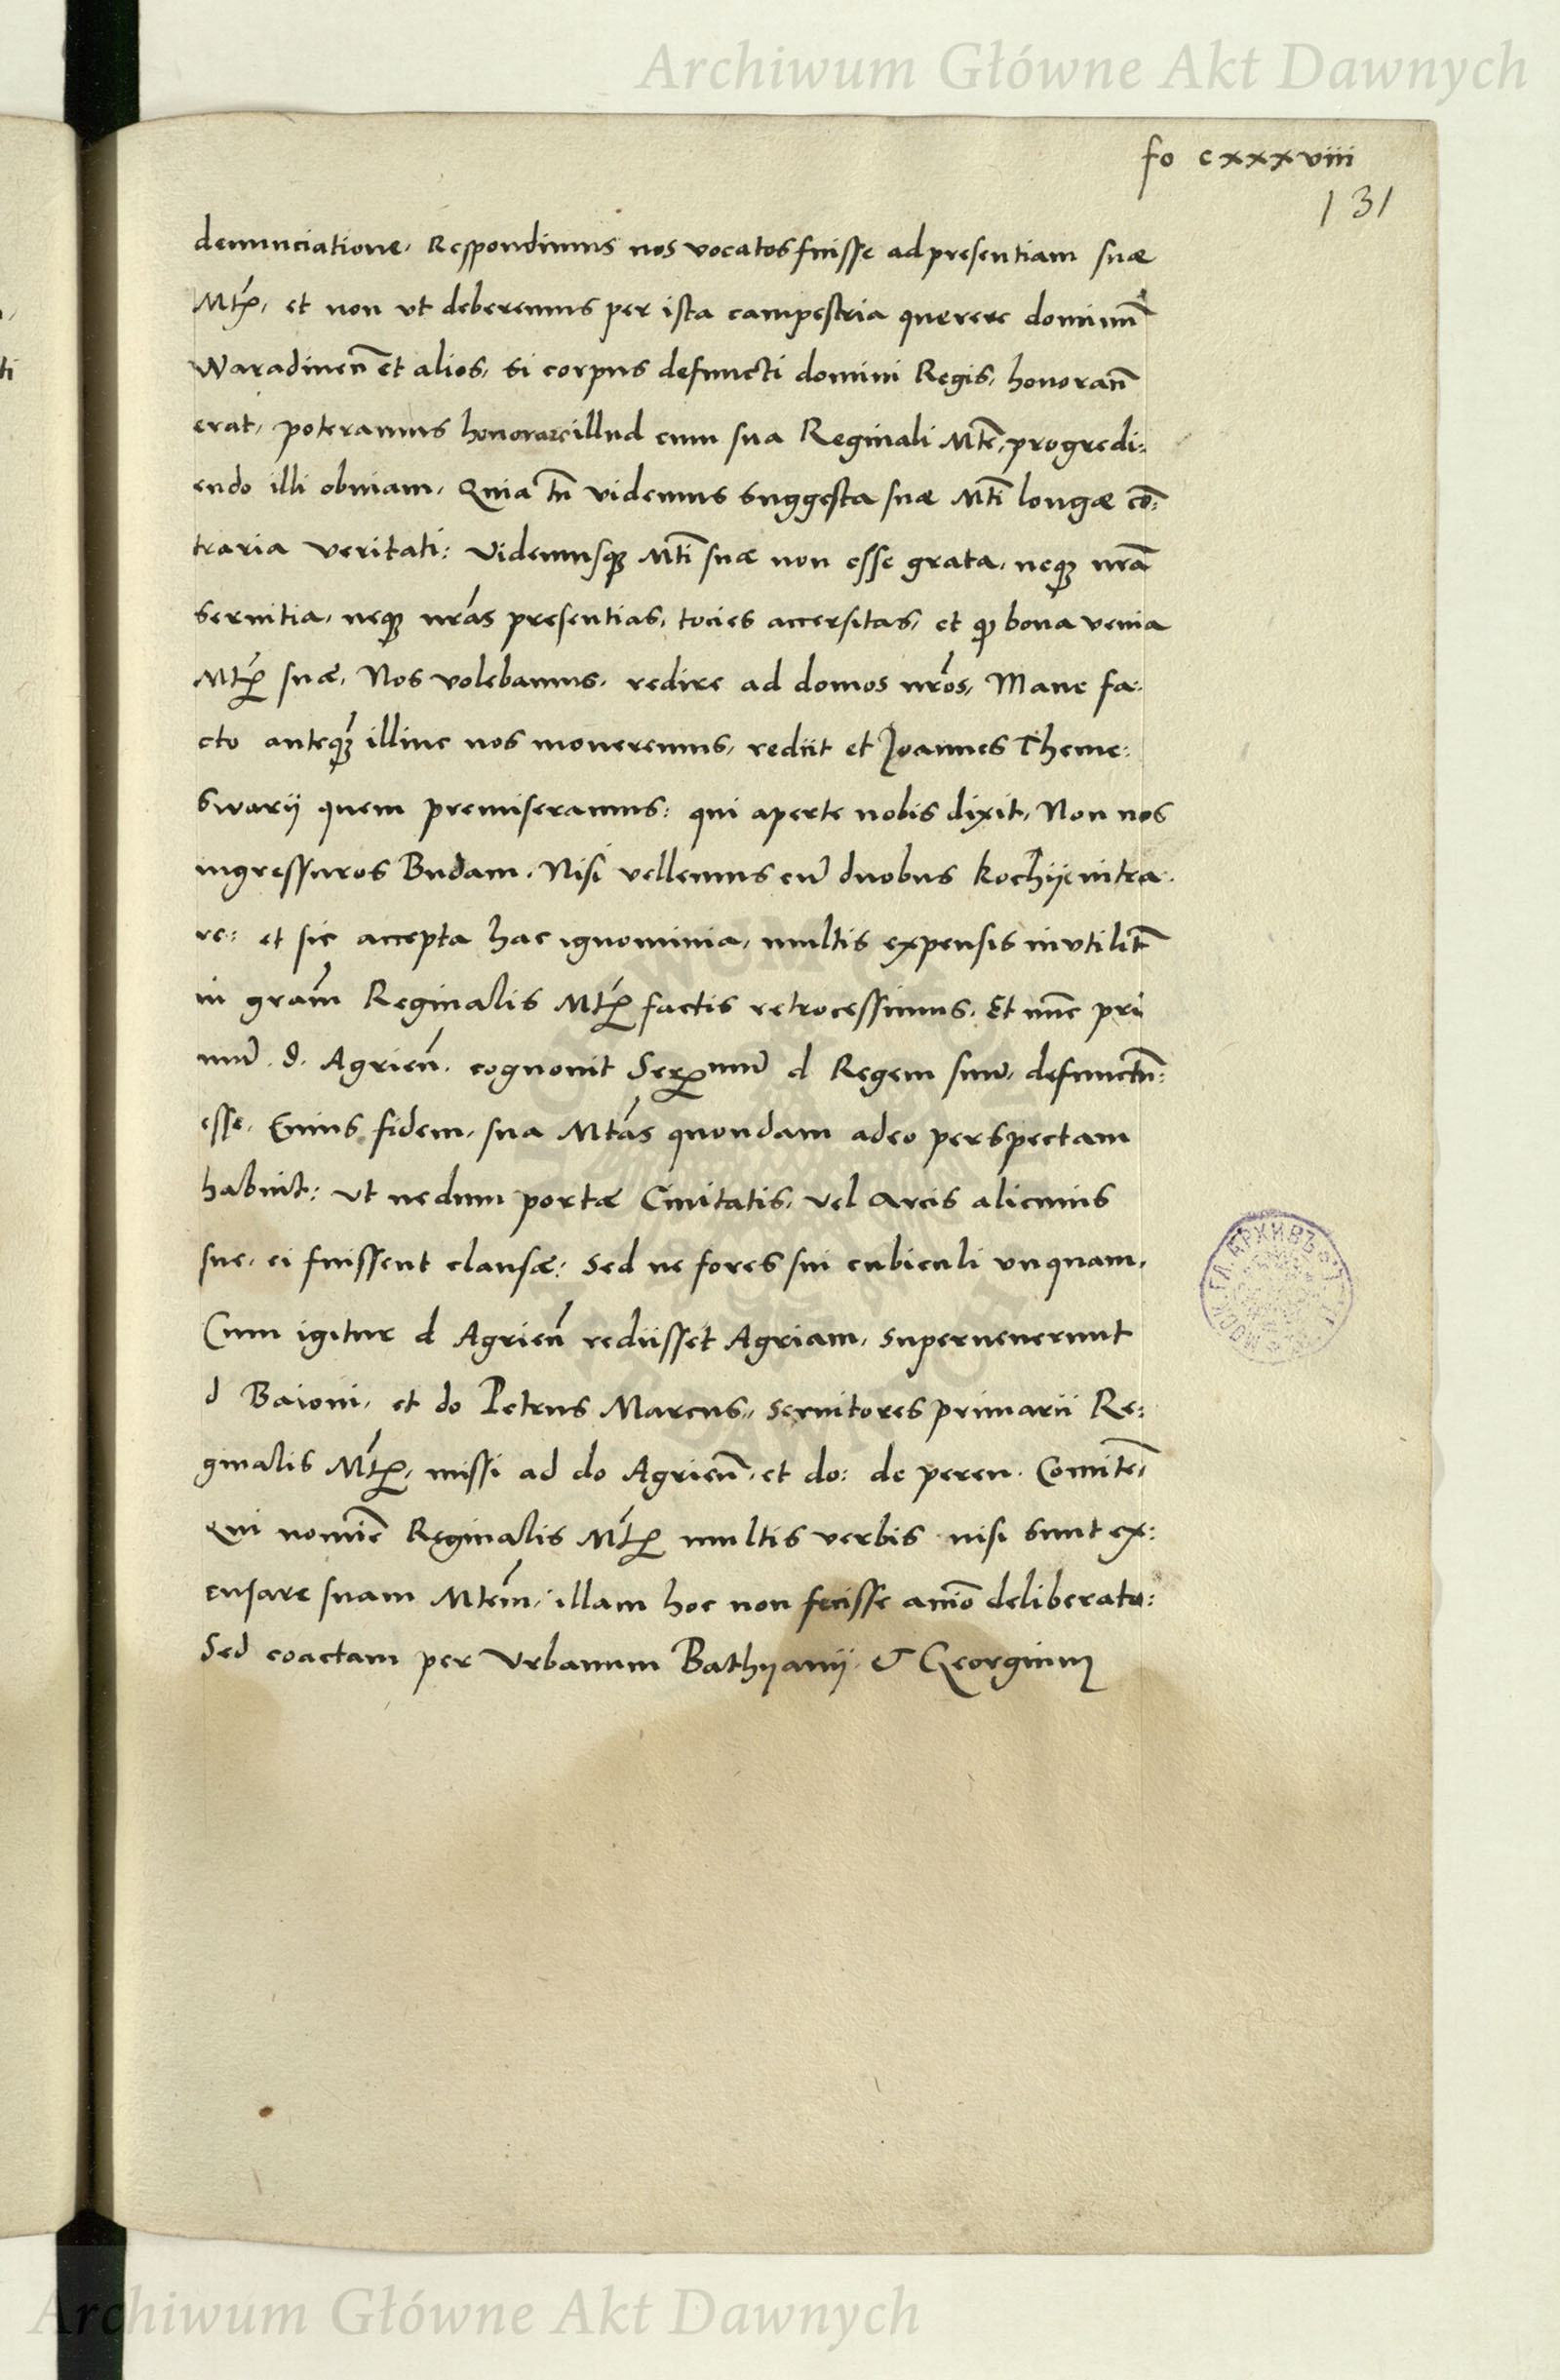 Archiwum Główne Akt Dawnych
fo cxxxviii
131
denunciatione, Respondimus nos vocatos fuisse ad presentiam suæ
Mtis, et non vt deberemus per ista campestria querere dominũ
Waradineñ et alios, si corpus defuncti domini Regis, honorañ
erat, poteramus honorare illud cum sua Reginali Mte, progredi:
endo illi obuiam, Quia tñ videmus suggesta suæ Mti longæ cõ:
traria veritati: Videmusq; Mti suæ non esse grata, neq; nrã
seruitia, neq; nrãs presentias, tocies accersitas, et q bona venia
Mtis suæ, Nos volebamus, redire ad domos nrõs, Mane fa:
cto anteq̃ illinc nos moueremus, rediit et Joannes Theme:
swarii quem premiseramus: qui aperte nobis dixit, Non nos
ingressuros Budam, Nisi vellemus cũ duobus kochÿ intra:
re: et sic accepta hac ignominia, multis expensis invtilit̃
in grãm Reginalis Mtis factis retrocessimus, Et nũc pri
mũ d. Agrieñ cognouit Serᵐũ d Regem suũ, defunctũ:
esse, Cuius fidem, sua Mtãs quondam adeo perspectam
habuit: vt nedum portæ Ciuitatis, vel Arcis alicuius
sue, ei fuissent clausæ: Sed ne fores sui cubiculi vnquam,
Cum igitur d Agrieñ rediisset Agriam, superuenerunt
d Baioni, et do Petrus Marcus, seruitores primarii Re:
ginalis Mtis, missi ad do Agrieñ, et do: de peren Comitẽ,
Qui nomiẽ Reginalis Mtis multis verbis nisi sunt ex:
cusare suam Mtẽm, illam hoc non fecisse aĩo deliberato:
Sed coactam per Vrbanum Bathÿanÿ & Georgium
Archiwum Główne Akt Dawnych